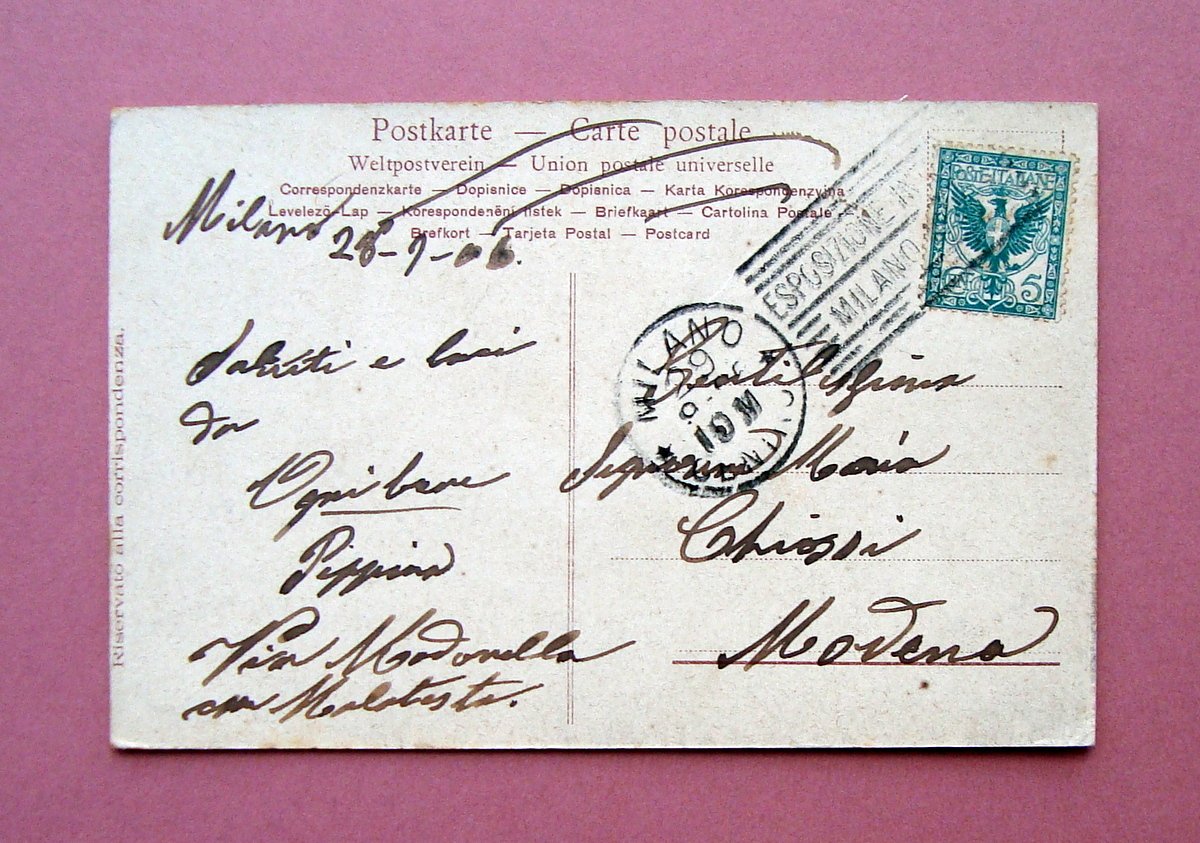 Postkarte — Carte postale
Weltpostverein — Union postale universelle
Correspondenzkarte — Dopisnice — Dopisnica — Karta Korespondenzyjna
Levelező-Lap — Korespondenční lístek — Briefkaart — Cartolina Postale
Brefkort — Tarjeta Postal — Postcard
Milano 28-9-06.
Saluti e baci
da
Ognibene
Pippina
Via Madonella
Malatesta.
Riservato alla corrispondenza.
POSTE·ITALIANE
5
ESPOSIZIONE
MILANO
MILANO
10 M
Gentilissima
Signorina Maria
Chiossi
Modena